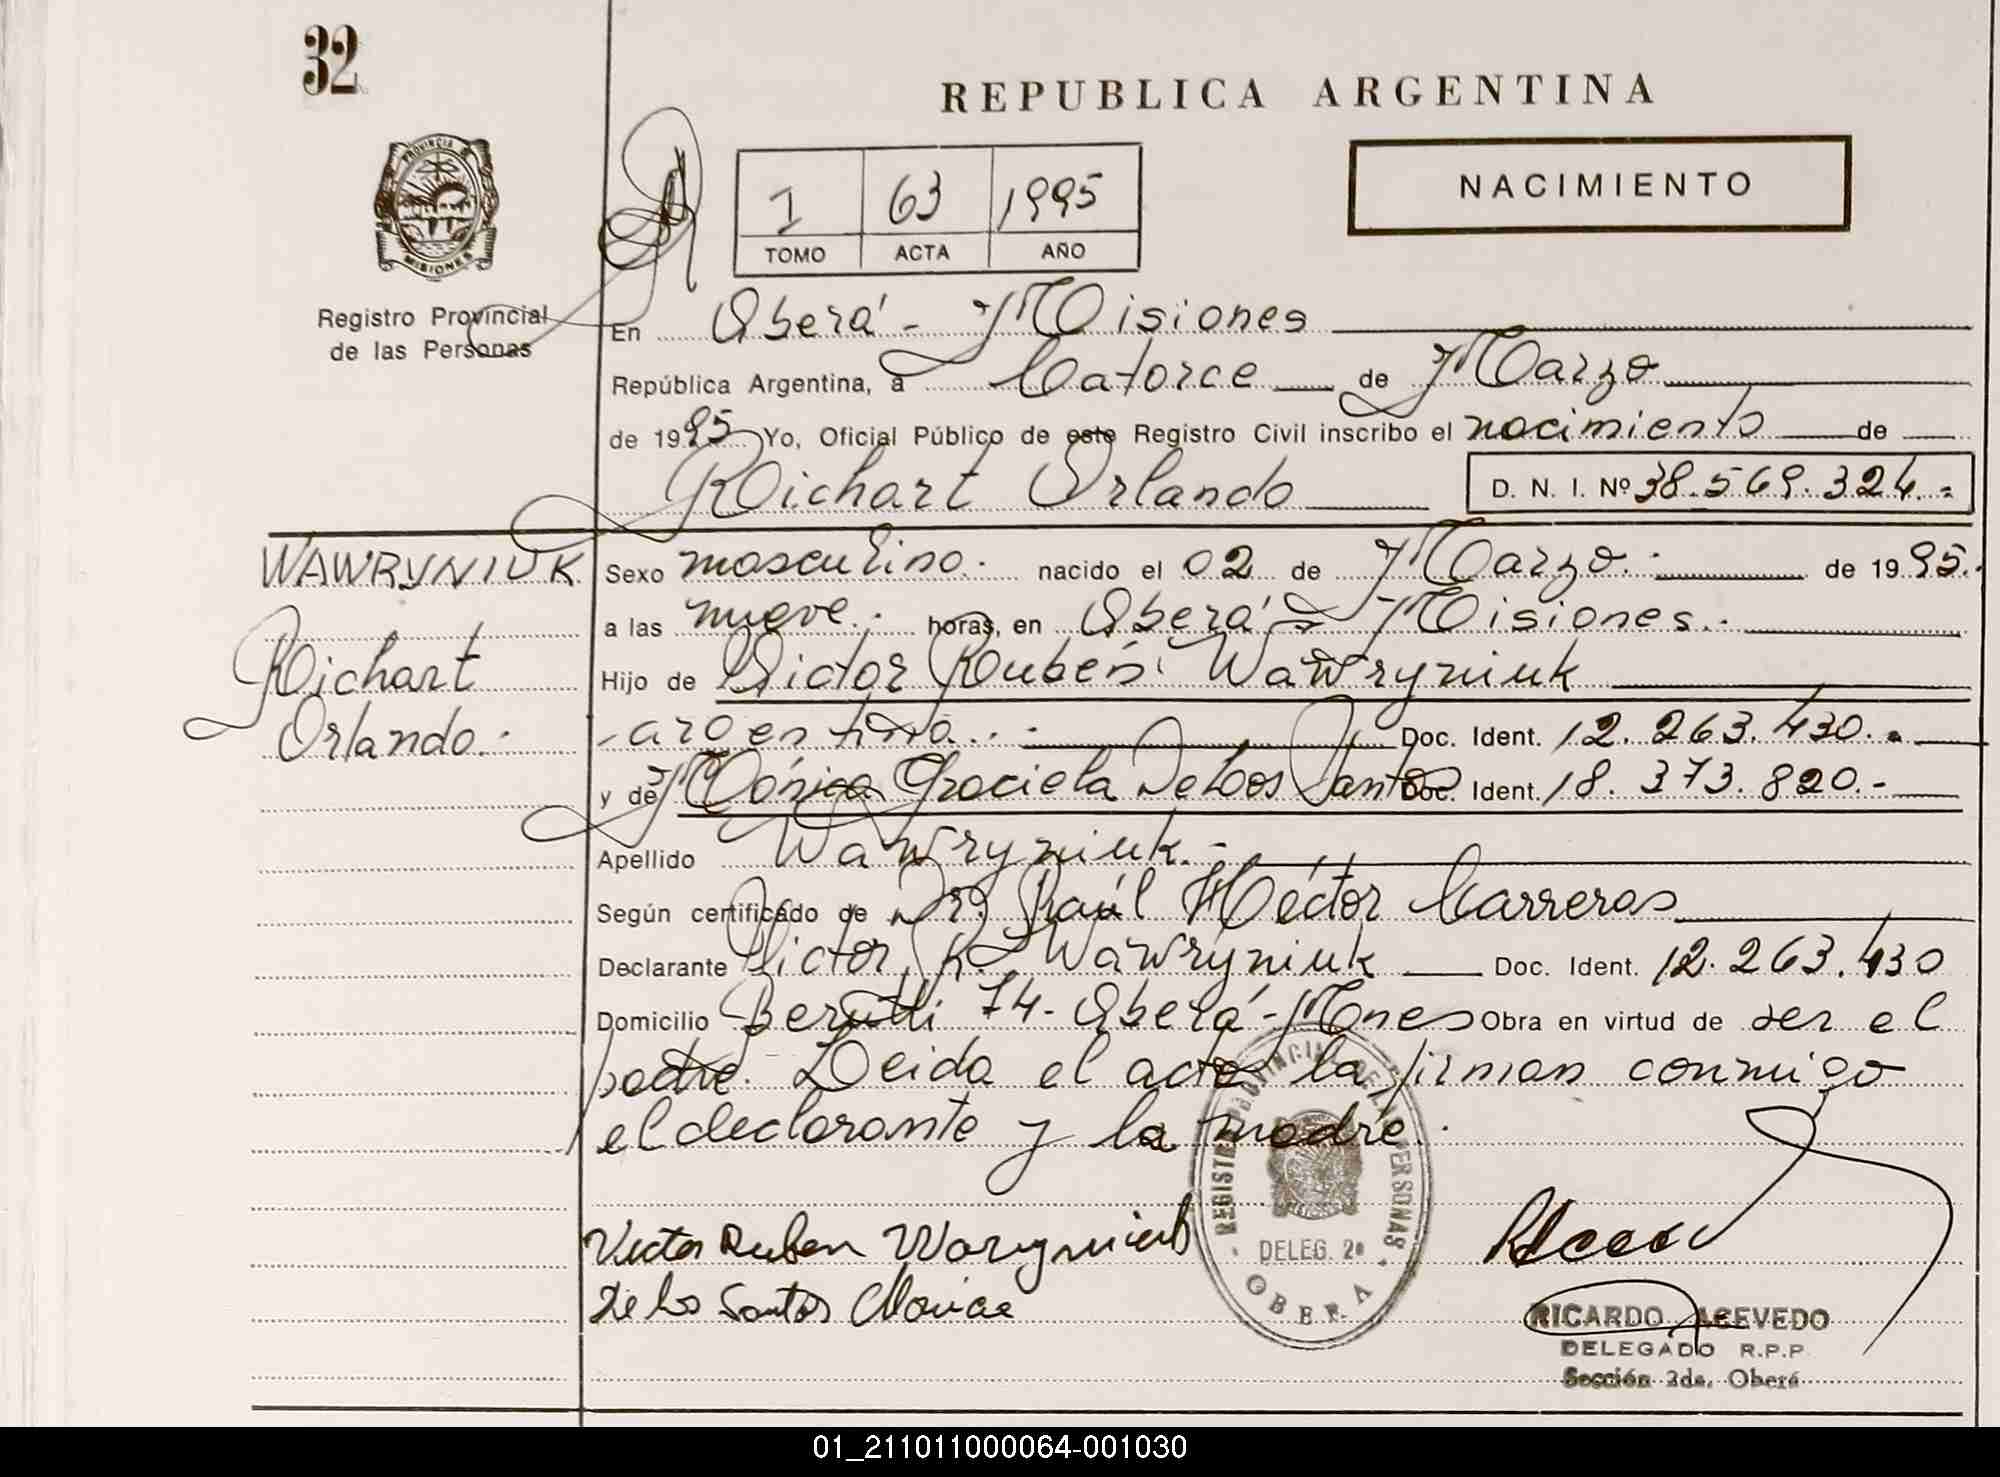 32
REPUBLICA ARGENTINA
PROVINCIA D
MISIONES
NACIMIENTO
I 63 1995
TOMO ACTA AÑO
Registro Provincial
de las Personas
En Oberá - Misiones
República Argentina, a Catorce de Marzo
de 1995 Yo, Oficial Público de este Registro Civil inscribo el nacimiento de
Richart Orlando D. N. I. Nº 38.569.324.=
WAWRYNIUK
Richart
Orlando.-
Sexo masculino.- nacido el 02 de Marzo.- de 1995.
a las nueve.- horas, en Oberá - Misiones.-
Hijo de Victor Rubén Wawryniuk
-argentino.- Doc. Ident. 12.263.430.-
y de Mónica Graciela De Los Santos Doc. Ident. 18.373.820.-
Apellido Wawryniuk.-
Según certificado de Dr. Raúl Héctor Carreras
Declarante Victor R. Wawryniuk Doc. Ident. 12.263.430
Domicilio Berutti 74- Oberá- Mnes Obra en virtud de ser el
padre. Leida el acta la firman conmigo
el declarante y la madre.-
REGISTRO PROVINCIAL DE LAS PERSONAS
DELEG. 2ª
OBERA
Victor Ruben Wawryniuk
De los Santos Monica
RICARDO ACEVEDO
DELEGADO R.P.P.
Sección 2da. Oberá
01_211011000064-001030